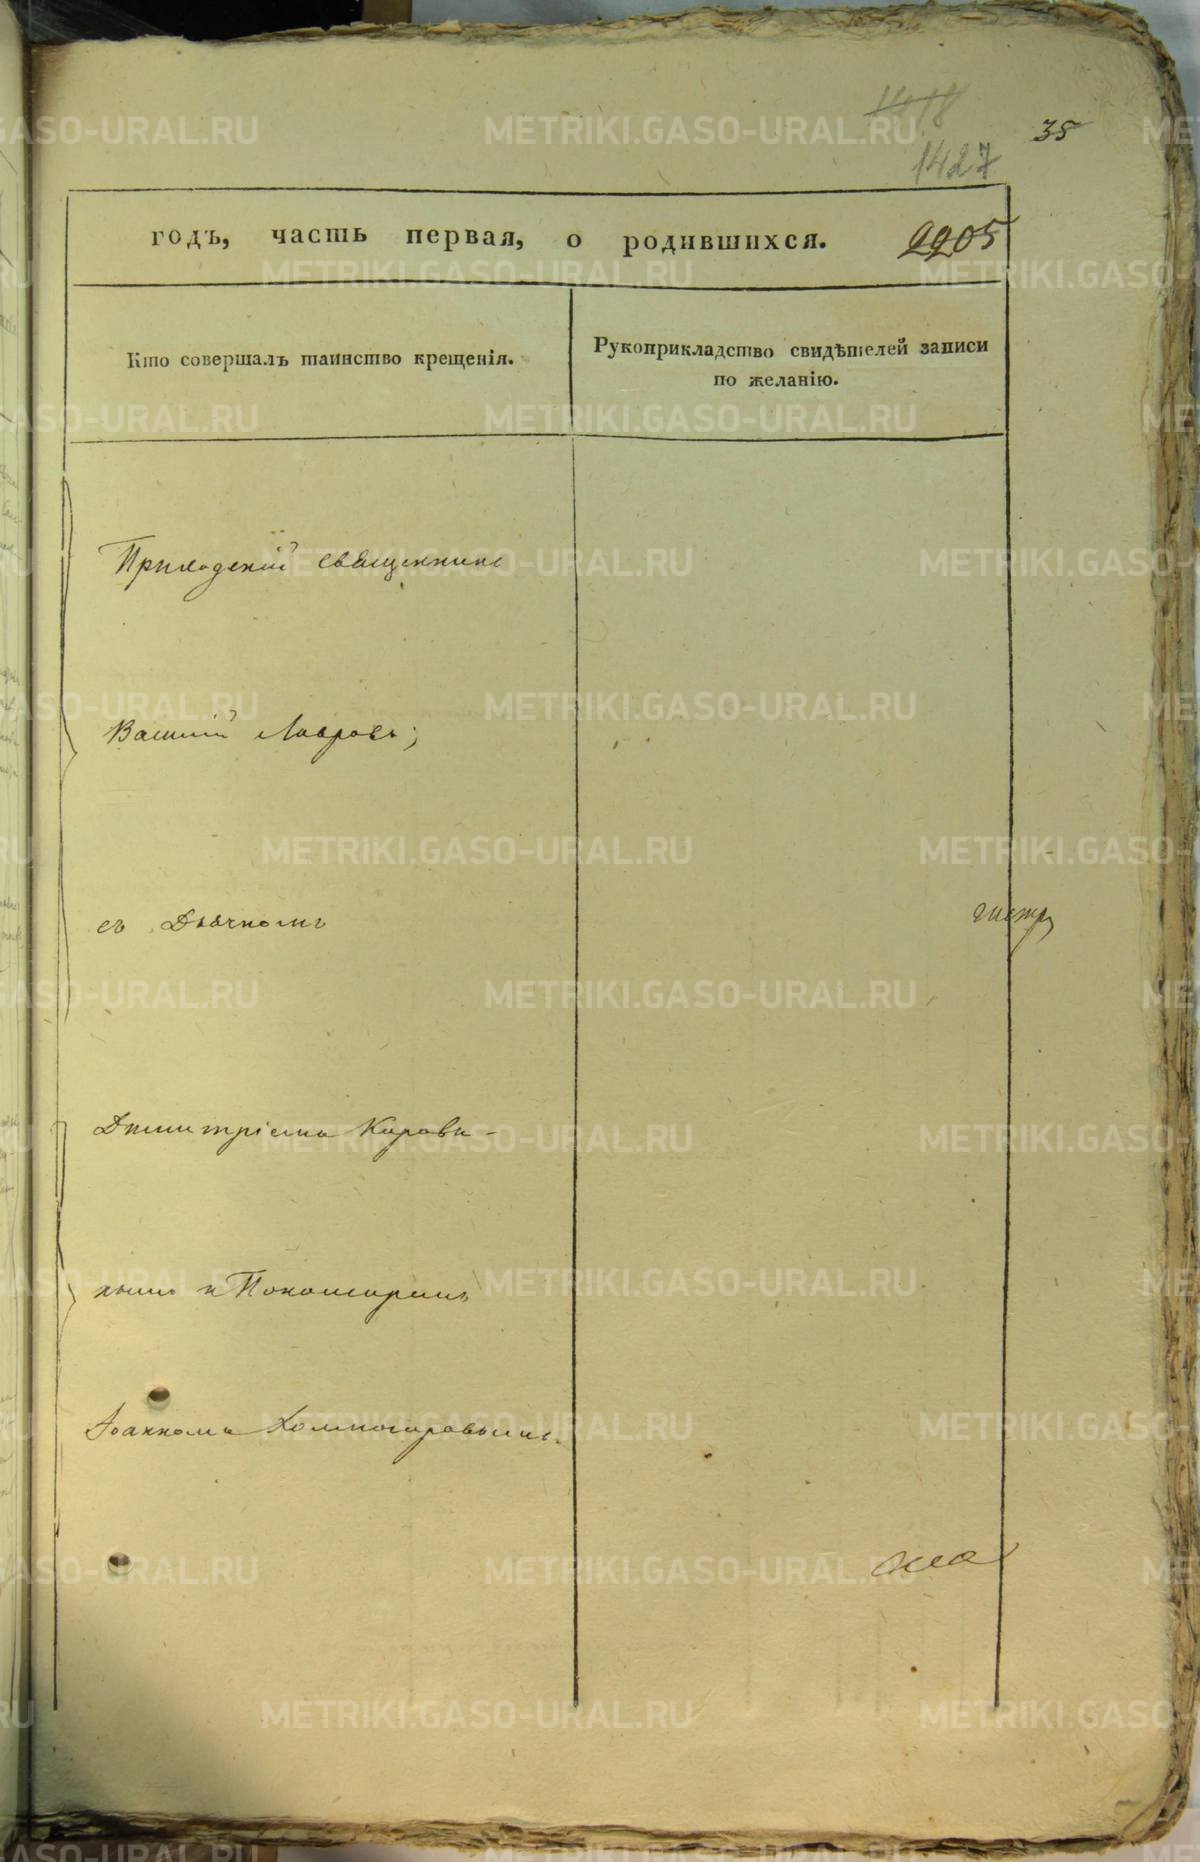 35
1427
годъ, часть первая, о родившихся. 2205
Кто совершалъ таинство крещенія.
Рукоприкладство свидѣтелей записи
по желанію.
Приходскій священникъ
Василій Лавровъ;
съ Дьячкомъ
Димитріемъ Корови-
нымъ и Пономаремъ
Іоанномъ
METRIKI.GASO-URAL.RU